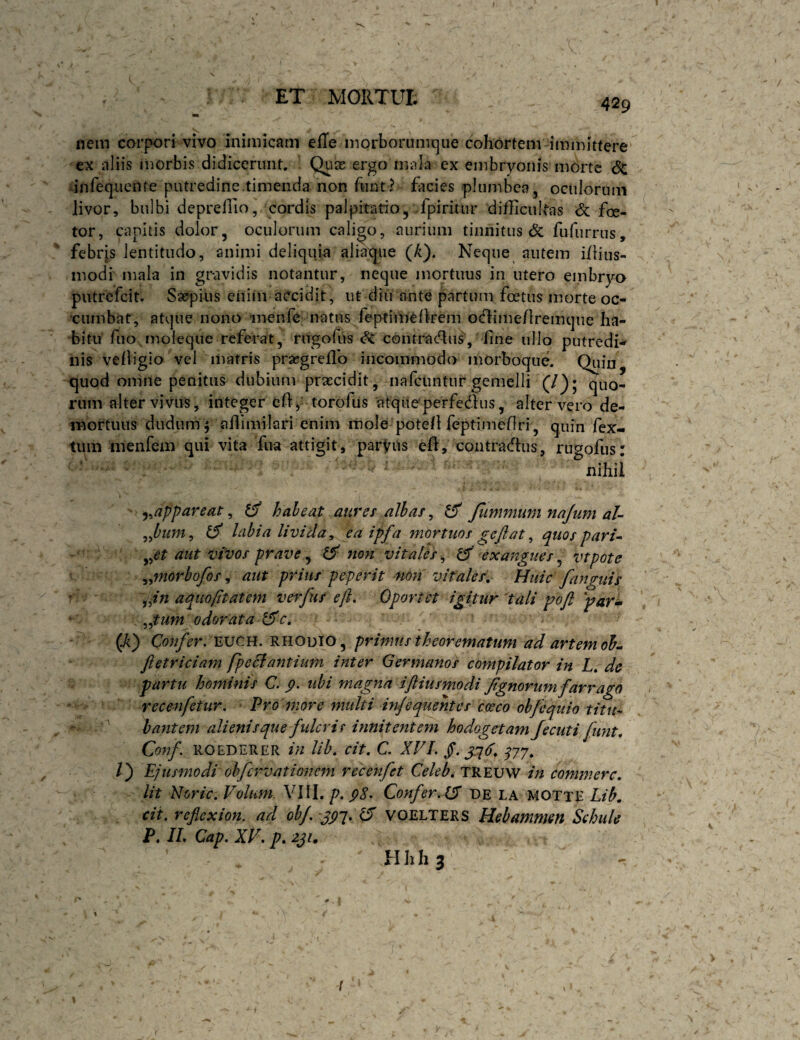 ET MORTUI.
429
nem corpori vivo inimicam eſſe morborumque cohortem immittere
ex aliis morbis didicerunt. Quæ ergo mala ex embryonis morte &
inſequente putredine timenda non ſunt? facies plumbea, oculorum
livor, bulbi depreſſio, cordis palpitatio, ſpiritur difficultas & fœ-
tor, capitis dolor, oculorum caligo, aurium tinnitus & ſuſurrus,
febris lentitudo, animi deliquia aliaque (k). Neque autem iſtius-
modi mala in gravidis notantur, neque mortuus in utero embryo
putreſcit. Sæpius enim accidit, ut diu ante partum fœtus morte oc-
cumbat, atque nono menſe natus ſeptimeſtrem octimeſtremque ha-
bitu ſuo moleque referat, rugoſus & contractus, ſine ullo putredi-
nis veſtigio vel matris prægreſſo incommodo morboque. Quin,
quod omne penitus dubium præcidit, naſcuntur gemelli (l); quo-
rum alter vivus, integer eſt, toroſus atque perfectus, alter vero de-
mortuus dudum; aſſimilari enim mole poteſt ſeptimeſtri, quin ſex-
tum menſem qui vita ſua attigit, parvus eſt, contractus, rugoſus:
nihil
„appareat, & habeat aures albas, & ſummum naſum al-
„bum, & labia livida, ea ipſa mortuos geſtat, quos pari-
„et aut vivos prave, & non vitales, & exangues, vtpote
„morboſos, aut prius peperit non vitales. Huic ſanguis
„in aquoſitatem verſus eſt. Oportet igitur tali poſt par-
„tum odorata &c.
(k) Confer. EUCH. RHODIO, primus theorematum ad artem ob-
ſtetriciam ſpectantium inter Germanos compilator in L. de
partu hominis C. 9. ubi magna iſtiusmodi ſignorum farrago
recenſetur. Pro more multi inſequentes cæco obſequio titu-
bantem alienisque fulcris innitentem hodogetam ſecuti ſunt.
Conf. ROEDERER in lib. cit. C. XVI. §. 376. 377.
l) Ejusmodi obſervationem recenſet Celeb. TREUW in commerc.
lit Noric. Volum. VIII. p. 98. Confer. & DE LA MOTTE Lib.
cit. reflexion. ad obſ. 397. & VOELTERS Hebammen Schule
P. II. Cap. XV. p. 231.
Hhh 3